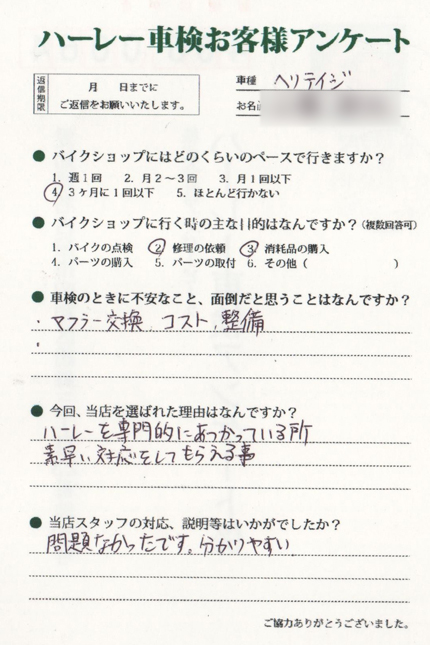 ハーレー車検お客様アンケート
返信期限
月　　日までに
ご返信をお願いいたします。
車種 ヘリテイジ
お名前
● バイクショップにはどのくらいのペースで行きますか？
1. 週1回　2. 月2～3回　3. 月1回以下
4. 3ヶ月に1回以下　5. ほとんど行かない
● バイクショップに行く時の主な目的はなんですか？（複数回答可）
1. バイクの点検　2. 修理の依頼　3. 消耗品の購入
4. パーツの購入　5. パーツの取付　6. その他（　　　　）
● 車検のときに不安なこと、面倒だと思うことはなんですか？
・マフラー交換、コスト、整備
● 今回、当店を選ばれた理由はなんですか？
ハーレーを専門的にあつかっている所
素早い対応をしてもらえる事
● 当店スタッフの対応、説明等はいかがでしたか？
問題なかったです。分かりやすい
ご協力ありがとうございました。